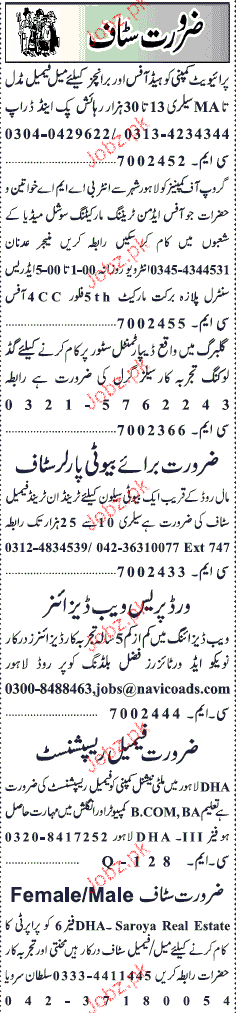 ضرورت سٹاف
پرائیویٹ کمپنی کو ہیڈ آفس اور برانچز کیلئے میل فیمیل مڈل
تا MA سیلری 13 تا 30 ہزار رہائش پک اینڈ ڈراپ
0304-0429622/ 0313-4234344
سی ایم۔ 7002452
گروپ آف کمپنیز کو لاہور شہر سے انٹر بی اے ایم اے خواتین و
حضرات جو آفس ایڈمن ٹریننگ مارکیٹنگ سوشل میڈیا کے
شعبوں میں کام کر سکیں رابطہ کریں منیجر عدنان
0345-4344531 انٹرویو روزانہ 1-00 تا 5-00 ایڈریس
سنٹرل پلازہ برکت مارکیٹ 5th فلور 4CC آفس
سی ایم۔ 7002455
گلبرگ میں واقع ڈیپارٹمنٹل سٹور پر کام کرنے کیلئے گڈ
لوکنگ تجربہ کار سیلز گرلز کی ضرورت ہے رابطہ
0321-5762243
سی ایم۔ 7002366
ضرورت برائے بیوٹی پارلر سٹاف
مال روڈ کے قریب ایک بیوٹی سیلون کیلئے ٹرینڈ ان ٹرینڈ فیمیل
سٹاف کی ضرورت ہے سیلری 10 سے 25 ہزار تک رابطہ
0312-4834539/ 042-36310077 Ext 747
سی ایم۔ 7002433
ورڈ پریس ویب ڈیزائنر
ویب ڈیزائننگ میں کم از کم 5 سال تجربہ کار ڈیزائنرز درکار
نویکو ایڈورٹائزرز فضل بلڈنگ کوپر روڈ لاہور
0300-8488463,jobs@navicoads.com
سی۔ایم۔ 7002444
ضرورت فیمیل ریسپشنسٹ
DHA لاہور میں ملٹی نیشنل کمپنی کو فیمیل ریسپشنسٹ کی ضرورت
ہے تعلیم B.COM, BA کمپیوٹر اور انگلش میں مہارت حاصل
ہو فیز DHA-III لاہور 0320-8417252
سی ایم۔ Q-128
ضرورت سٹاف Female/Male
DHA- Saroya Real Estate فیز 6 کو پراپرٹی کا
کام کرنے کیلئے میل/فیمیل سٹاف درکار ہیں محنتی اور تجربہ کار
حضرات رابطہ کریں 0333-4411445 سلطان سرویا
042-37180054